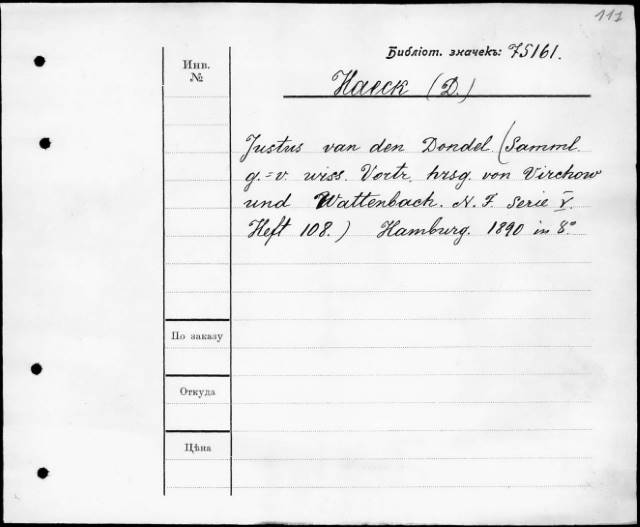 111
Библіот. значекъ: 75161.
Инв.
№
Haeck (D.)
Justus van den Dondel (Samml.
g.=v. wiss. Vortr. hrsg. von Virchow
und Wattenbach. N. F. Serie V.
Heft 108.) Hamburg. 1890 in 8.°
По заказу
Откуда
Цѣна